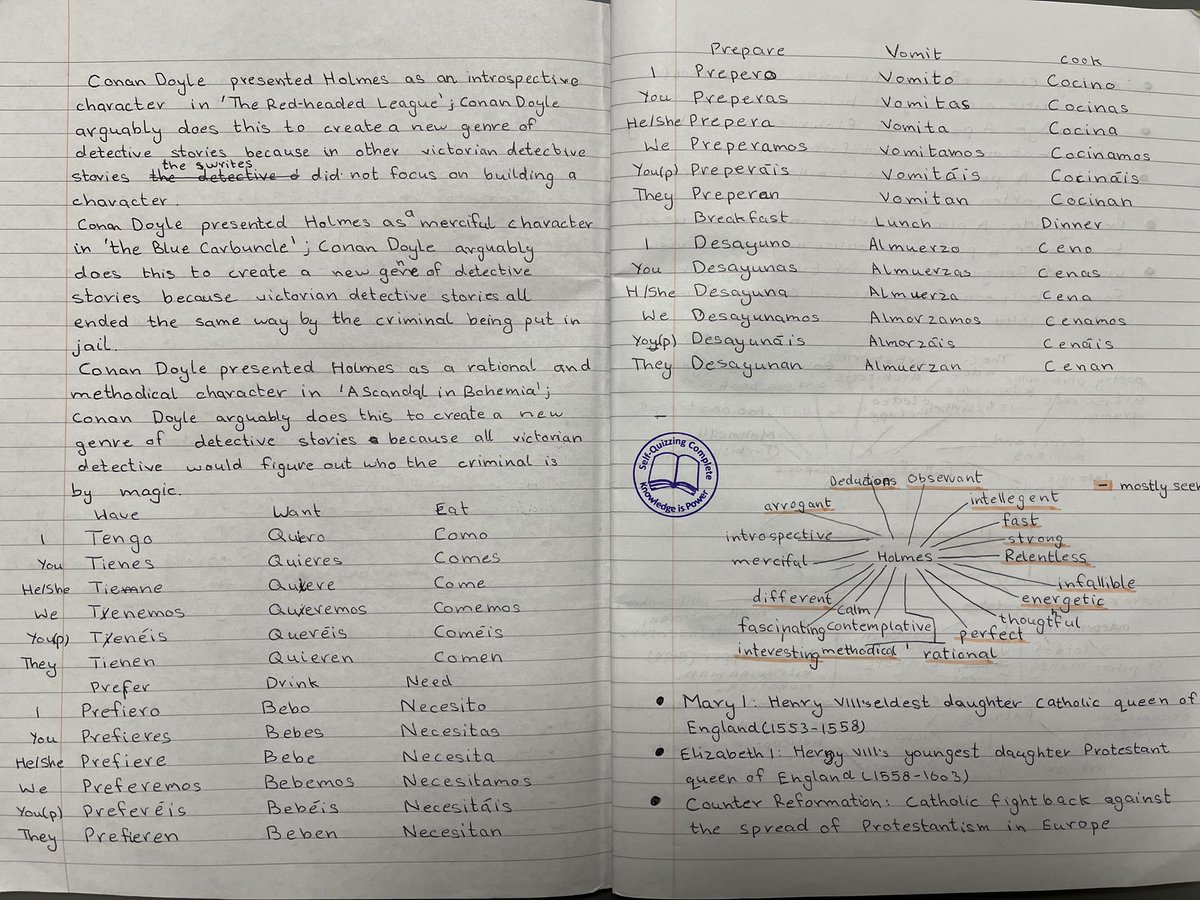 Conan Doyle presented Holmes as an introspective
character in 'The Red-headed League'; Conan Doyle
arguably does this to create a new genre of
detective stories because in other victorian detective
the swrites
stories the detective d did not focus on building a
character.
Conan Doyle presented Holmes as a merciful character
in 'the Blue Carbuncle'; Conan Doyle arguably
does this to create a new genne of detective
stories because victorian detective stories all
ended the same way by the criminal being put in
jail.
Conan Doyle presented Holmes as a rational and
methodical character in 'A Scandal in Bohemia';
Conan Doyle arguably does this to create a new
genre of detective stories because all victorian
detective would figure out who the criminal is
by magic.
Have Want Eat
I Tengo Quiero Como
You Tienes Quieres Comes
He/She Tiene Quiere Come
We Tenemos Queremos Comemos
You(p) Tenéis Queréis Coméis
They Tienen Quieren Comen
Prefer Drink Need
I Prefiero Bebo Necesito
You Prefieres Bebes Necesitas
He/She Prefiere Bebe Necesita
We Preferemos Bebemos Necesitamos
You(p) Preferéis Bebéis Necesitáis
They Prefieren Beben Necesitan
Prepare Vomit Cook
I Prepero Vomito Cocino
You Preperas Vomitas Cocinas
He/She Prepera Vomita Cocina
We Preperamos Vomitamos Cocinamos
You(p) Preperáis Vomitáis Cocináis
They Preperan Vomitan Cocinan
Breakfast Lunch Dinner
I Desayuno Almuerzo Ceno
You Desayunas Almuerzas Cenas
H/She Desayuna Almuerza Cena
We Desayunamos Almorzamos Cenamos
Yoy(p) Desayunáis Almorzáis Cenáis
They Desayunan Almuerzan Cenan
Self-Quizzing Complete
Knowledge is Power
Deductions Observant
- mostly seen
arrogant intellegent
fast
introspective strong
merciful Holmes Relentless
infallible
different energetic
calm thougthful
fascinating contemplative perfect
interesting methodical rational
• Mary I: Henry VIII's eldest daughter catholic queen of
England (1553-1558)
• Elizabeth I: Henry VIII's youngest daughter Protestant
queen of England (1558-1603)
• Counter Reformation: Catholic fightback against
the spread of Protestantism in Europe